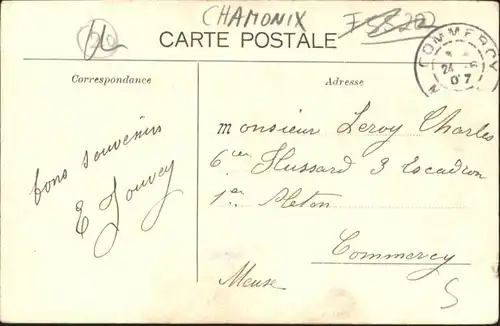 CHAMONIX
CARTE POSTALE
COMMERCY
24 -6
07
Correspondance
Adresse
bons souvenirs
E Jouvey
Monsieur Leroy Charles
6em Hussard 3 Escadron
1er Pleton
Commercy
Meuse
5